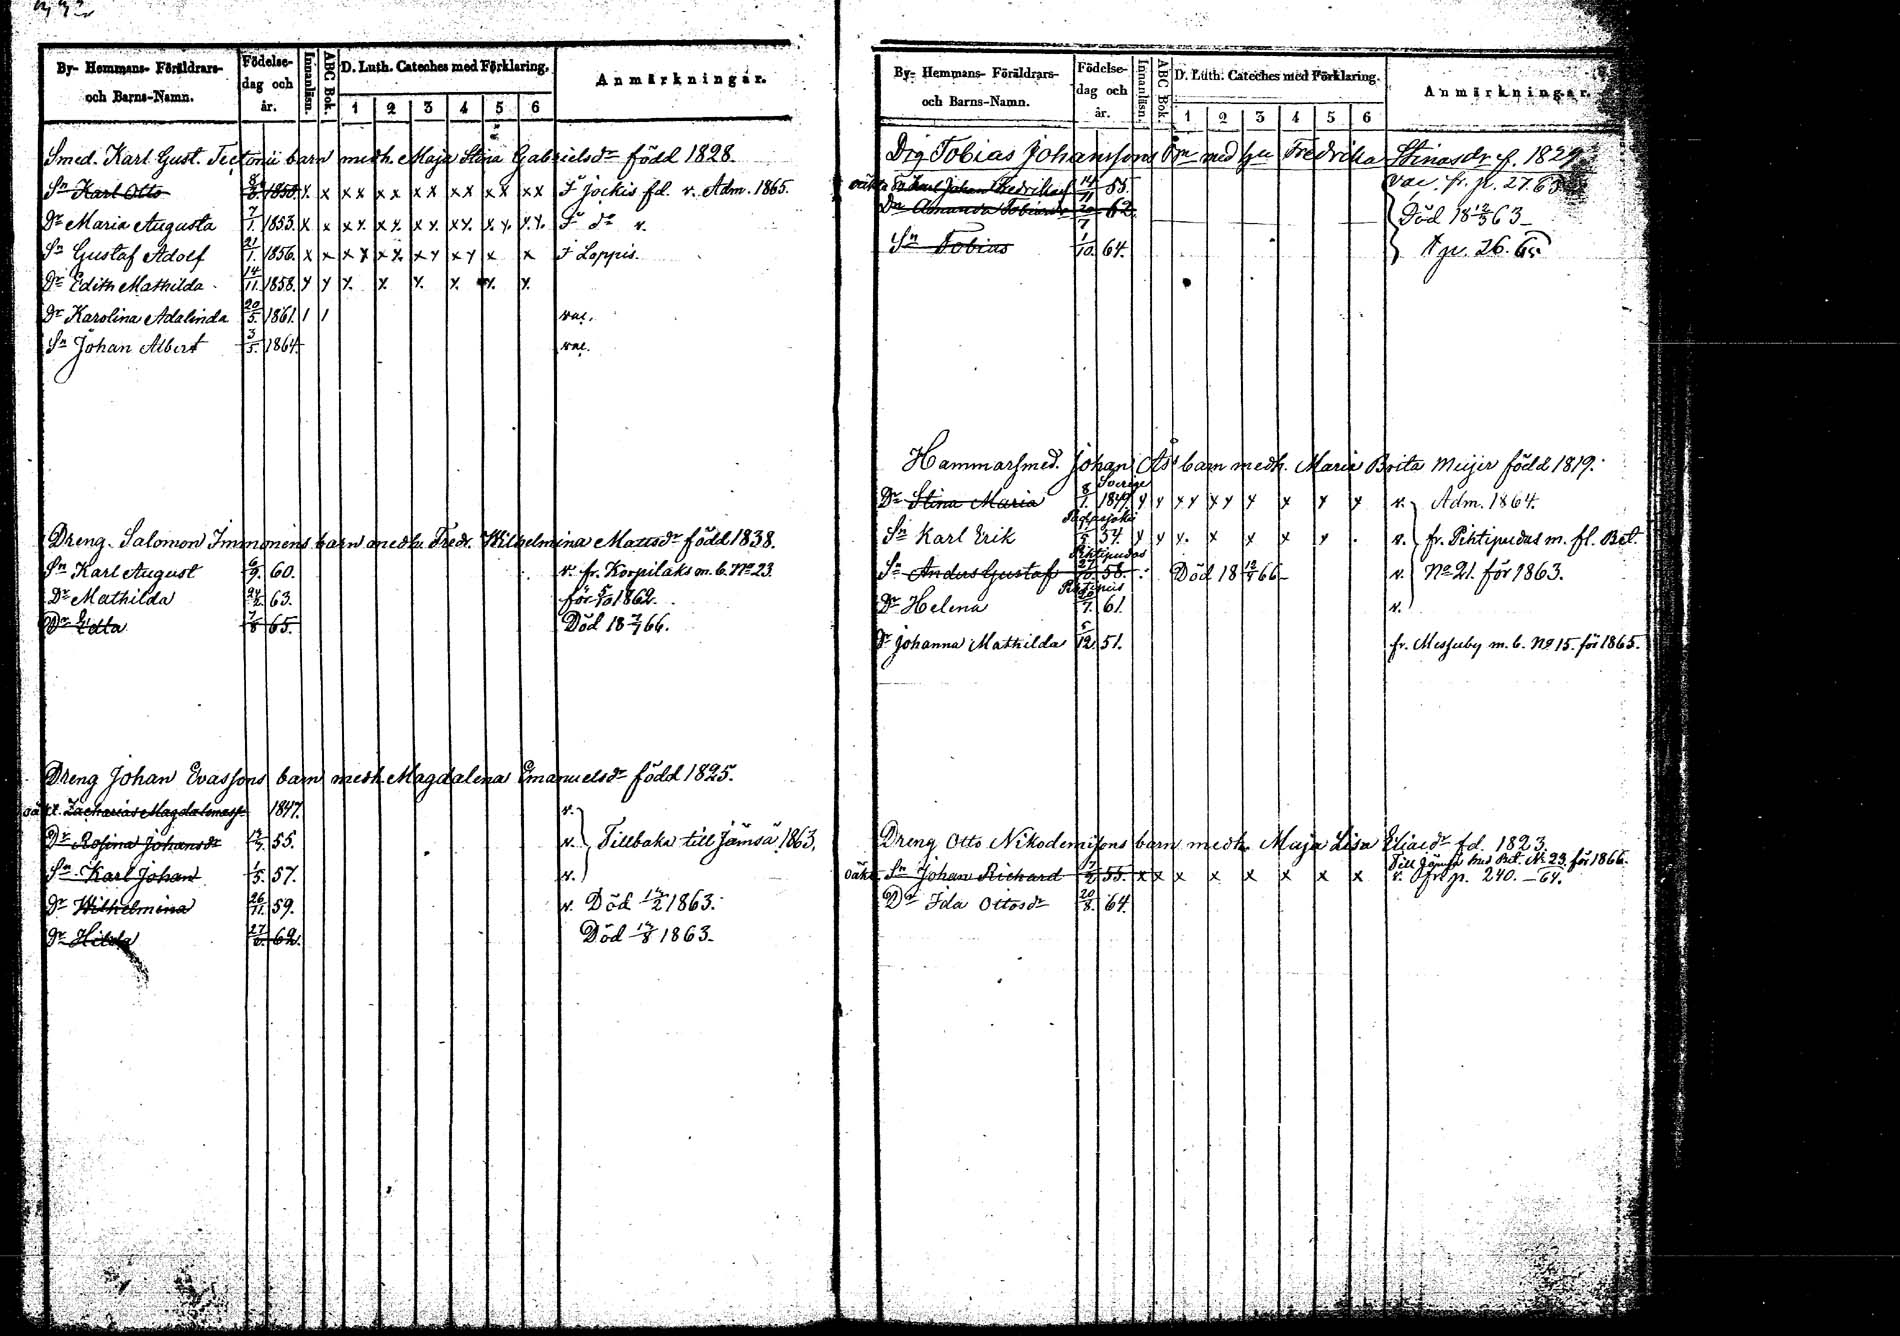 By- Hemmans- Föräldrars- och Barns-Namn. Födelse- dag och år. Innanläsn. ABC Bok. D. Luth. Cateches med Förklaring. 1 2 3 4 5 6 Anmärkningar.
Smed. Karl Gust. Teetonii barn medh. Maja Stina Gabrielsdr född 1828.
Sn Karl Otto 1850. x x xx xx xx xx xx xx F Jockis fd. v. Adm. 1865.
Dr Maria Augusta 7/1. 1853. x x xx xx xx xx xx xx F do v.
Sn Gustaf Adolf 21/1. 1856. x x xx xx xx xx x x F Loppis.
Dr Edith Mathilda 14/11. 1858. x x x x x x x x
Dr Karolina Adalinda 20/5. 1861. 1 1 vac.
Sn Johan Albert 3/5. 1864. vac.
Dreng. Salomon Immonens barn medh. Fredr. Wilhelmina Mattsdr född 1838.
Sn Karl August 6/9. 60. v. fr. Korpilaks m. b. No 23.
Dr Mathilda 24/2. 63. för 5/10 1862.
Dr Edla 7/8 65. Död 18 7/1 66.
Dreng Johan Evassons barn medh. Magdalena Emanuelsdr född 1825.
oäkt. Zacharias Magdalenass. 1847. v.
Dr Rosina Johansdr 55. v. Tillbaka till Jämsä 1863.
Sn Karl Johan 1/5. 57. v.
Dr Wilhelmina 26/11. 59. v. Död 1863.
Dr Hilda 62. Död 1863.
By- Hemmans- Föräldrars- och Barns-Namn. Födelse- dag och år. Innanläsn. ABC Bok. D. Luth. Cateches med Förklaring. 1 2 3 4 5 6 Anmärkningar.
Drg Tobias Johanssons Brn med hu Fredrika Stinasdr f. 1829
oäkta Sn Karl Johan Fredrikas 14/11 55. vac. fr. p. 27. 63
Dr Amanda Tobiasdr 20/7 62 Död 18 12/3 63
Sn Tobias 1/10. 64. p. 26. 65
Hammarsmed. Johan Ås barn medh. Maria Brita Meijer född 1819.
Sverige
Dr Stina Maria 8/1. 1849. x x xx xx x x x x v. Adm. 1864.
Padasjoki
Sn Karl Erik 54. x x x. x x x x . v. fr. Pihtipudas m. fl. Bet.
Pihtipudas
Sn Anders Gustaf 27/10. 58. Död 18 12/4 66 v. No 21. för 1863.
Dr Helena 61. v.
Dr Johanna Mathilda 5/12. 51. fr. Messuby m. b. No 15. för 1865.
Dreng Otto Nikodemissons barn medh. Maja Lisa Eliaedr fd. 1823.
Till Jämsä Bet. No 23. för 1866.
oäkt. Sn Johan Richard 7/2 55. x x x x x x x x v. fr. p. 240. 64.
Dr Ida Ottosdr 20/8. 64.